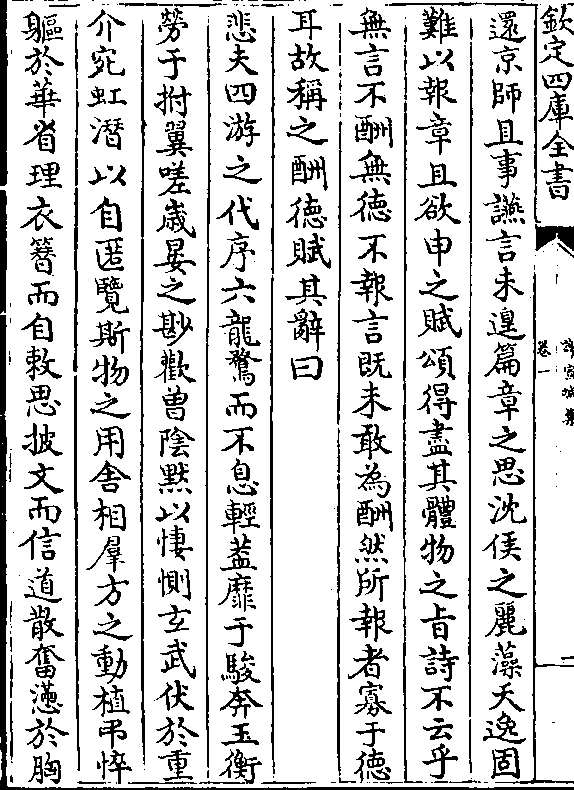 欽定四庫全書
謝宣城集
卷一
還京師且事讌言未遑篇章之思沈侯之麗藻天逸固
難以報章且欲申之賦頌得盡其體物之旨詩不云乎
無言不酬無德不報言既未敢為酬然所報者寡于德
耳故稱之酬德賦其辭曰
悲夫四游之代序六龍鶩而不息輕葢靡于駿奔玉衡
勞于拊翼嗟歲晏之尠歡曽陰黙以悽惻玄武伏於重
介宛虹潛以自匿覽斯物之用舍相羣方之動植弔悴
軀於華省理衣簪而自敕思披文而信道散奮懣於胸